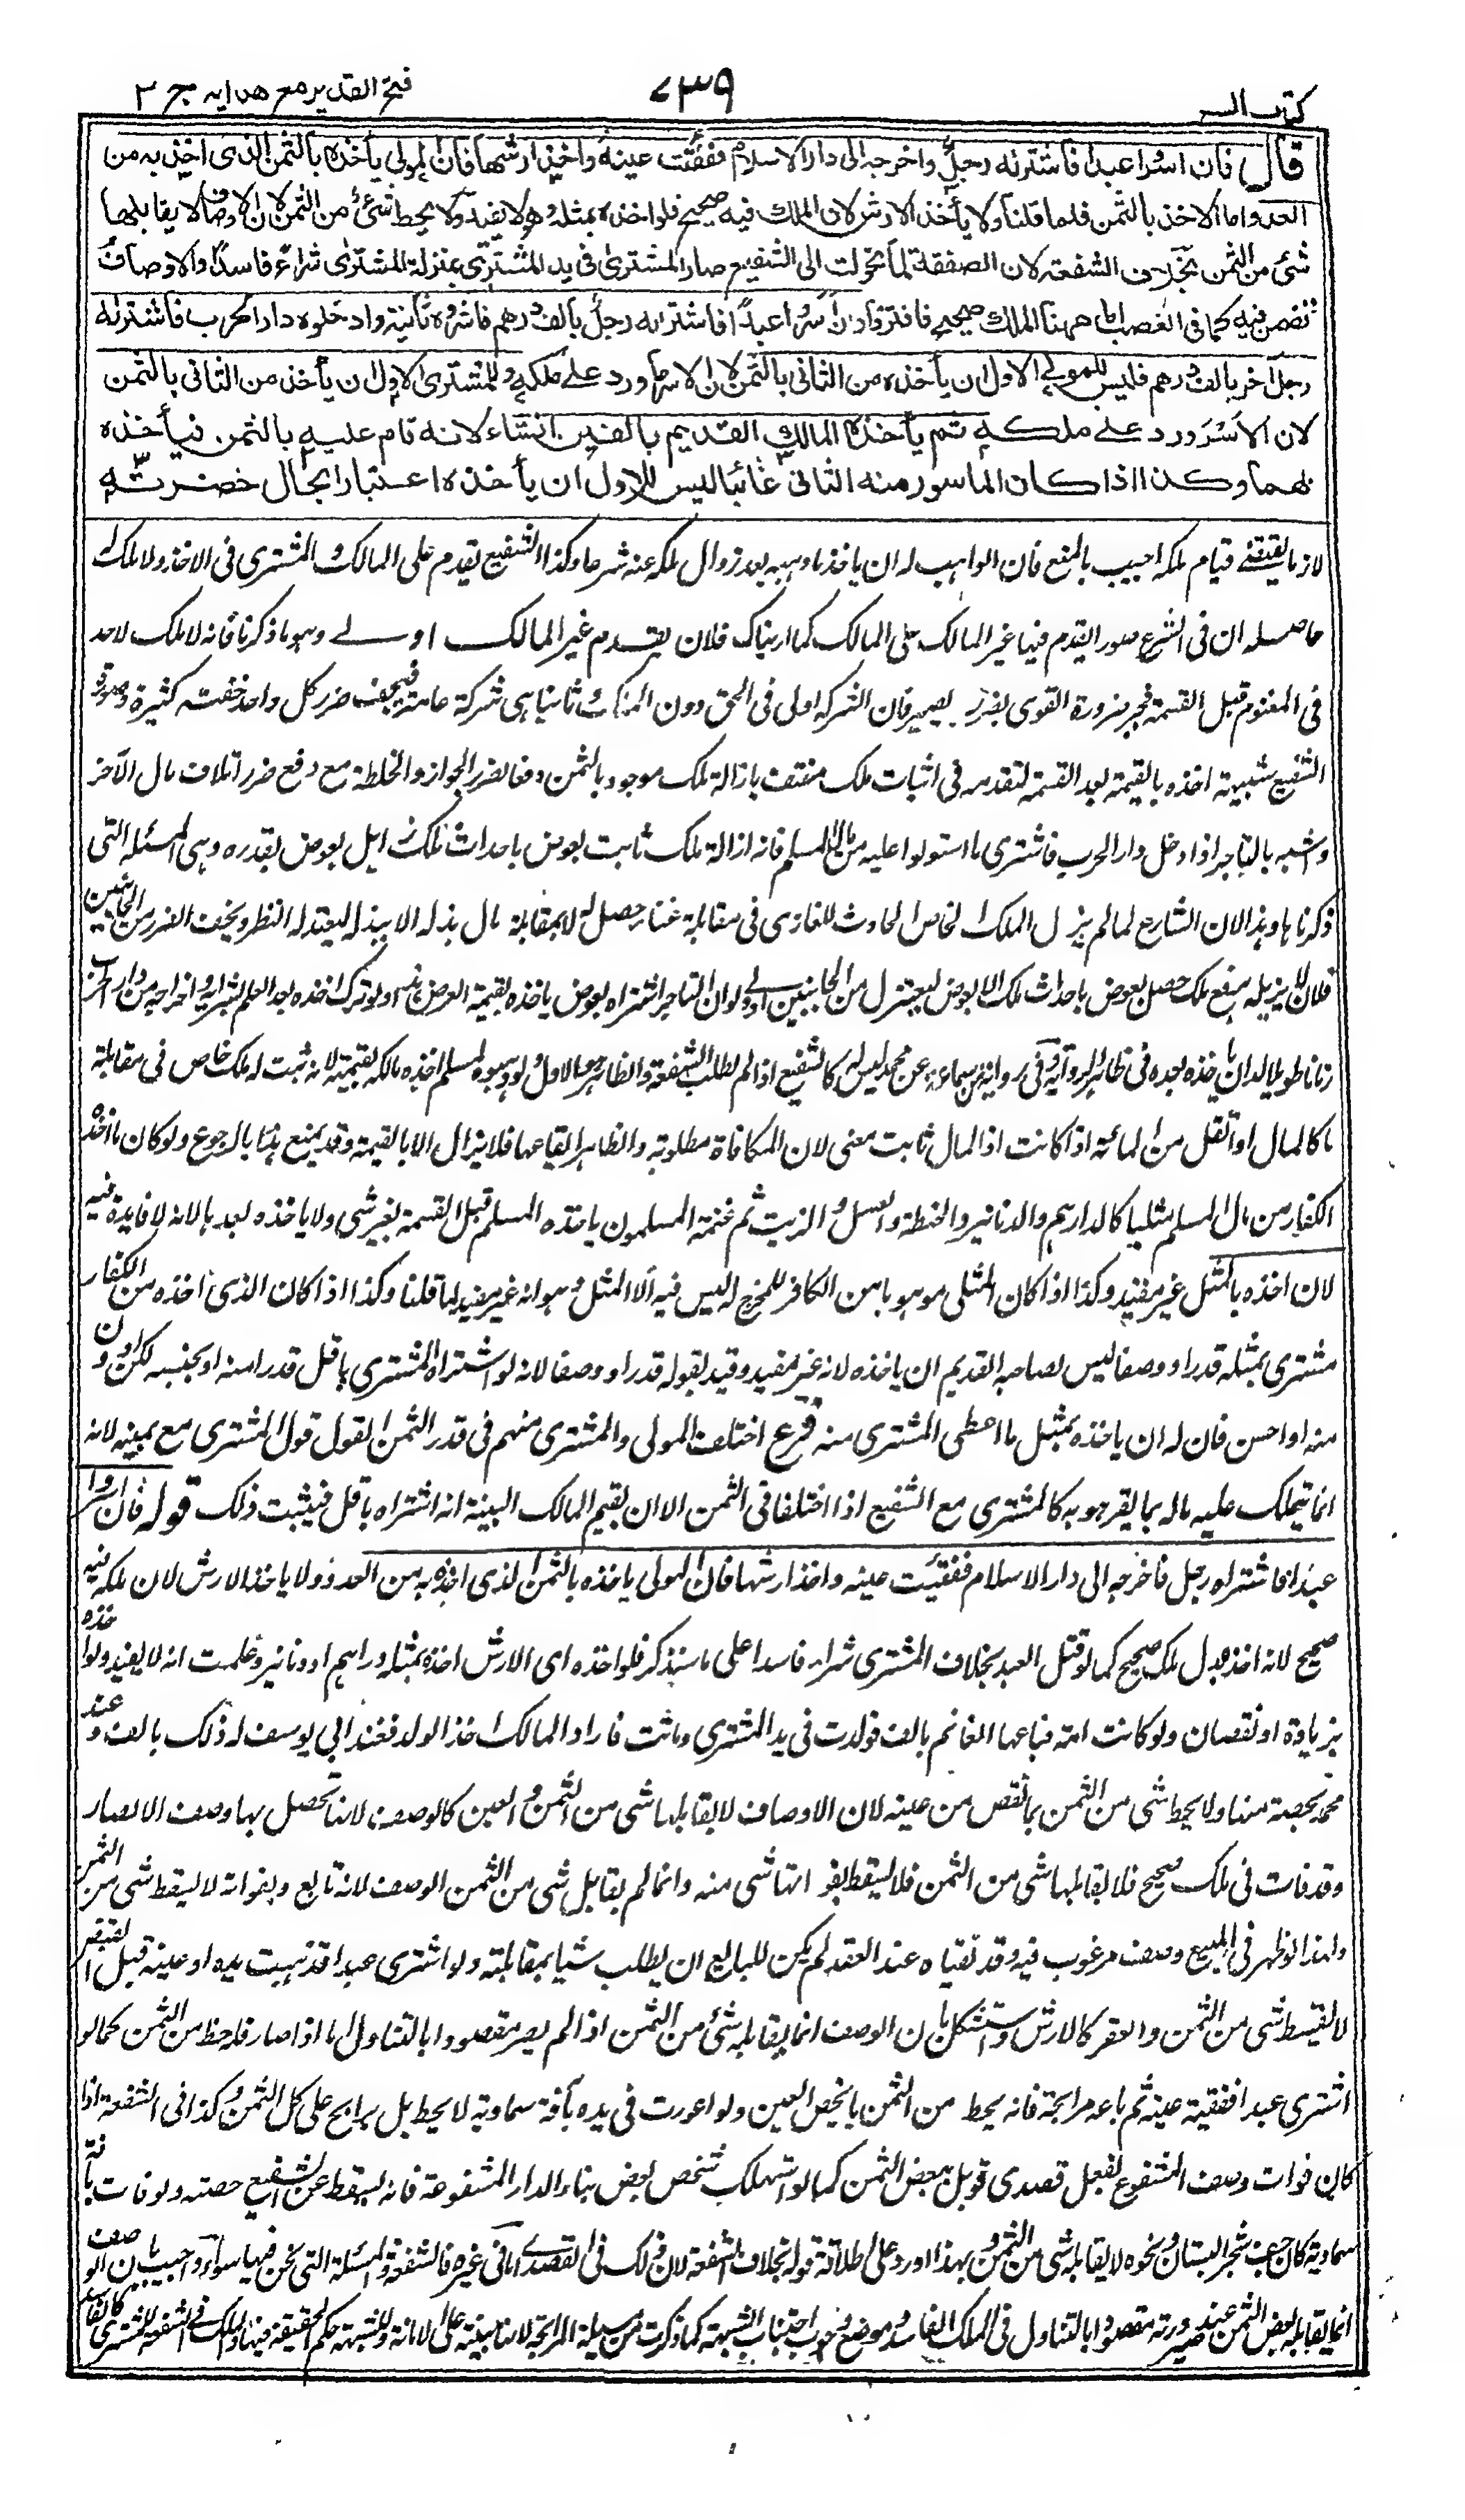 كتاب السير
٧٣٩
فتح القدير مع هدايه ج ٢
قال فان اسروا عبدا فاشتراه رجل واخرجه الى دار الاسلام ففقئت عينه واخذ ارشها فان المولى يأخذه بالثمن الذى اخذ به من
العدو اما الاخذ بالثمن فلما قلنا ولا يأخذ الارش لان الملك فيه صحيح فلو اخذه اخذه بمثله وهو لا يفيد ولا يحط شئ من الثمن لان الاوصاف لا يقابلها
شئ من الثمن بخلاف الشفعة لان الصفقة لما تحولت الى الشفيع صار المشترى فى يد المشترى بمنزلة المشترى شراء فاسدا والاوصاف
تضمن فيه كما فى الغصب اما ههنا الملك صحيح فافترقا وان اسروا عبدا فاشتراه رجل بالف درهم فاسروه ثانية وادخلوه دار الحرب فاشتراه
رجل اخر بالف درهم فليس للمولى الاول ان يأخذه من الثانى بالثمن لان الاسر ما ورد على ملكه وللمشترى الاول ان يأخذه من الثانى بالثمن
لان الاسر ورد على ملكه ثم يأخذه المالك القديم بالفين ان شاء لانه قام عليه بالثمن فيأخذه
بهما وكذا اذا كان الماسور منه الثانى غائبا ليس للاول ان يأخذه اعتبارا بحال حضرته
لازما يقتضى قيام ملكه اجيب بالمنع فان الواهب له ان ياخذ ما وهبه بعد زوال ملكه عنه شرعا وكذا الشفيع يقدم على المالك المشترى فى الاخذ ولا ملك له
حاصله ان فى الشرع صور القدم فيها غير المالك على المالك كما اريناك فلان يقدم غير المالك اولى وهو ما ذكرنا فانه لا ملك لاحد
فى المغنوم قبل القسمة فجبر ضرورة القوى بضرر يسير فان الشركة اولى فى الحق دون الملك ثانيا هى شركة عامة فيخف ضرر كل واحد خفة كثيرة وصورة
الشفيع شبيهة اخذه بالقيمة بعد القسمة لتقدمه فى اثبات ملك منتف بازالة ملك موجود بالثمن دفعا لضرر الجواز والخلطة مع دفع ضرر اتلاف مال الآخر
واشبه بالتاجر اذا دخل دار الحرب فاشترى ما استولوا عليه من مال المسلم فانه ازالة ملك ثابت بعوض باحداث ملك زائل بعوض بقدره وهى المسئلة التى
ذكرناها وهذا لان الشارع لما لم يزل الملك الخاص الحادث للغازى فى مقابلة غناء حصل له لا بمقابلة مال بذله الا ببذله ليعتدل النظر ويخف الضرر من الجانبين
فلان لا يزيله مع ملك حصل بعوض باحداث ملك الا بعوض ليعتدل من الجانبين اولى ولو ان التاجر اشتراه بعوض ياخذه بقيمة العرض ولو ترك اخذه بعد العلم بشرائه واخراجه من دار الحرب
زمانا طويلا له ان ياخذه بعده فى ظاهر الرواية وفى رواية ابن سماعة عن محمد ليس له كالشفيع اذا لم يطلب الشفعة والظاهر هو الاول ولو وهبوه لمسلم اخذه مالكه بقيمته لانه ثبت له ملك خاص فى مقابلة
ما كالمال او اثقل من المائة اذا كانت اذ المال ثابت معنى لان المكافاة مطلوبة والظاهر ايقاعها فلا يزال الا بالقيمة وقد يمنع هذا بالرجوع ولو كان ما اخذه
الكفار من مال المسلم مثليا كالدراهم والدنانير والحنطة والعسل والزيت ثم غنمه المسلمون ياخذه المسلم قبل القسمة بغير شى ولا ياخذه بعدها لانه لا فايدة فيه
لان اخذه بالمثل غير مفيد وكذا اذا كان المثلى موهوبا من الكافر للمخرج له ليس فيه الا المثل وهو انه غير مفيد لما قلنا وكذا اذا كان الذى اخذه من الكفار
مشترى بمثله قدرا ووصفا ليس لصاحبه القديم ان ياخذه لانه غير مفيد وقيد بقوله قدرا ووصفا لانه لو اشتراه المشترى باقل قدرا منه او بجنسه لكن دون
منه او احسن فان له ان ياخذه بمثل ما اعطى المشترى منه فرع اختلف المولى والمشترى منهم فى قدر الثمن القول قول المشترى مع يمينه لانه
انما يتملك عليه ماله بما يقر هو به كالمشترى مع الشفيع اذا اختلفا فى الثمن الا ان يقيم المالك البينة انه اشتراه باقل فيثبت ذلك قوله فان اسروا
عبدا فاشتراه رجل فاخرجه الى دار الاسلام ففقئت عينه واخذ ارشها فان المولى ياخذه بالثمن الذى اخذه به من العدو ولا ياخذ الارش لان ملكه فيه
صحيح لانه اخذ بدل ملك صحيح كما لو قتل العبد بخلاف المشترى شراء فاسدا على ما سنذكر فلو اخذه اى الارش اخذه بمثله دراهم او دنانير وعلمت انه لا يفيد ولو اخذه
بزيادة او نقصان ولو كانت امة فباعها الغانم بالف فولدت فى يد المشترى وماتت فاراد المالك اخذ الولد فعند ابى يوسف له ذلك بالف وعند
محمد بحصته منها ولا يحط شى من الثمن بما نقص من عينه لان الاوصاف لا يقابلها شى من الثمن والعين كالوصف لانها تحصل بها وصف الابصار
وقد فات فى ملك صحيح فلا يقابلها شى من الثمن فلا يسقط بفواتها شى منه وانما لم يقابل شى من الثمن الوصف لانه تابع وبفواته لا يسقط شى من الثمن
ولهذا لو ظهر فى المبيع وصف مرغوب فيه وقد نفياه عند العقد لم يكن للبايع ان يطلب شيا بمقابلته ولو اشترى عبدا فذهبت يده او عينه قبل القبض
لا يسقط شى من الثمن والعقر كالارش واستشكل بان الوصف انما يقابله شئ من الثمن اذا لم يصر مقصودا بالتناول اما اذا صار فله حظ من الثمن كما لو
اشترى عبدا ففقئت عينه ثم باعه مرابحة فانه يحط من الثمن ما يخص العين ولو اعورت فى يده بآفة سماوية لا يحط بل يرابح على كل الثمن وكذا فى الشفعة اذا
كان فوات وصف المشفوع بفعل قصدى قوبل ببعض الثمن كما لو استهلك شخص بعض بناء الدار المشفوعة فانه يسقط عن الشفيع حصته ولو فات بآفة
سماوية كان جف شجر البستان ونحوه لا يقابله شى من الثمن وبهذا اورد على اطلاقه قوله بخلاف الشفعة لان ذلك فى القصدى اما فى غيره فالشفعة والمسئلة التى نحن فيها سواء واجيب بان الوصف
انما يقابله بعض الثمن عند صيرورته مقصودا بالتناول فى الملك الفاسد وموضع وجوب اجتناب الشبهة كما ذكرت من مسئلة المرابحة لانها مبنية على الامانة وللشبهة حكم الحقيقة فيها والملك فى الشفعة للمشترى كالفاسد